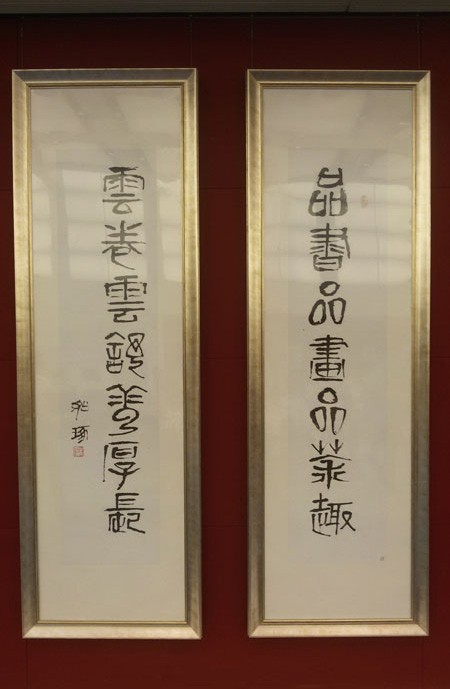 品書品畫品茶趣
雲卷雲舒厚長